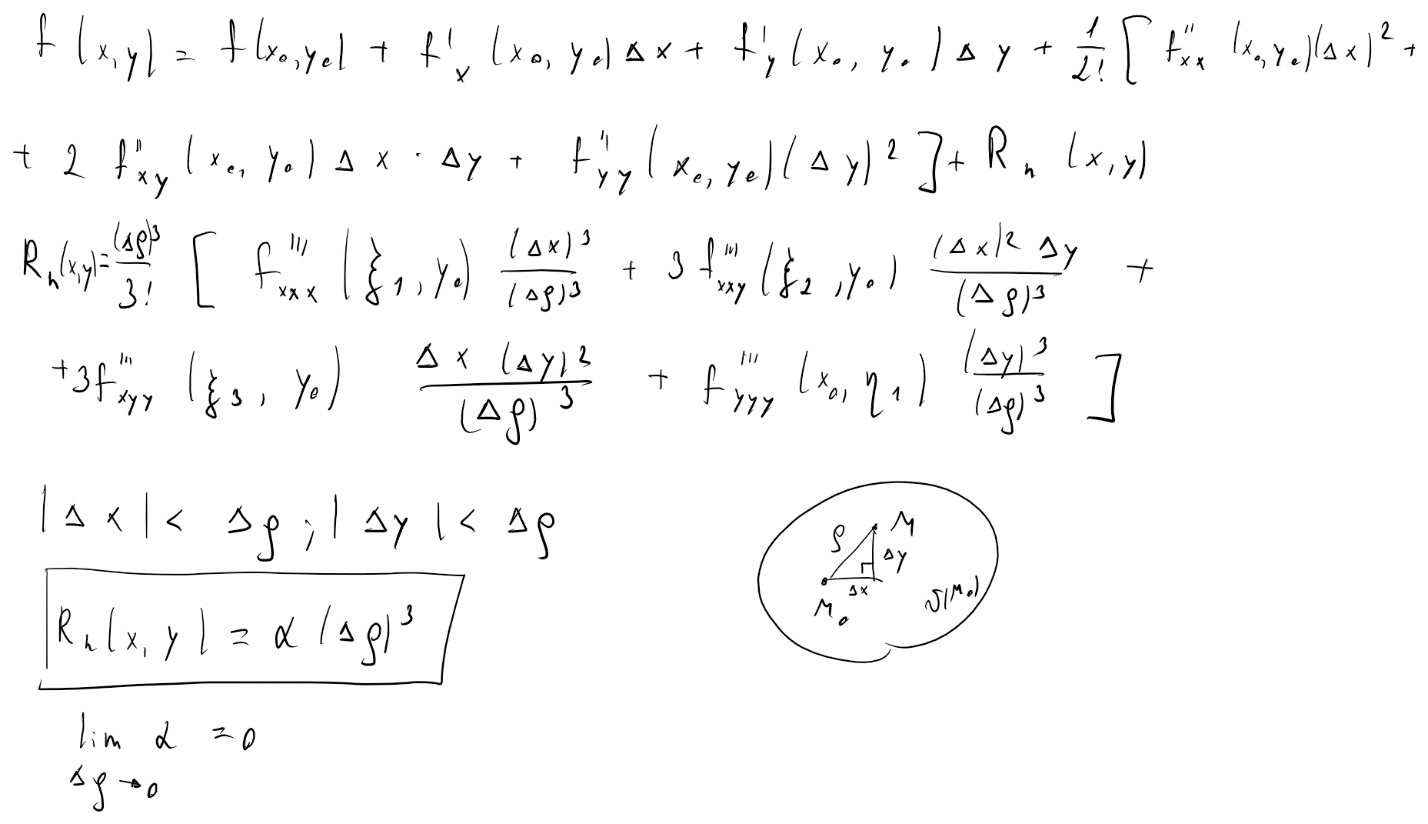 f(x,y) = f(x₀,y₀) + f'ₓ(x₀,y₀)Δx + f'_y(x₀,y₀)Δy + 1/2! [f''ₓₓ(x₀,y₀)(Δx)² +
+ 2 f''_xy(x₀,y₀)Δx · Δy + f''_yy(x₀,y₀)(Δy)²] + Rₙ(x,y)
Rₙ(x,y) = (Δρ)³/3! [f'''_xxx(ξ₁,y₀) (Δx)³/(Δρ)³ + 3 f'''_xxy(ξ₂,y₀) (Δx)²Δy/(Δρ)³ +
+3f'''_xyy(ξ₃,y₀) Δx(Δy)²/(Δρ)³ + f'''_yyy(x₀,η₁) (Δy)³/(Δρ)³]
|Δx| < Δρ; |Δy| < Δρ
Rₙ(x,y) = α(Δρ)³
lim α = 0
Δρ→0
ρ
M
Δy
Δx
M₀